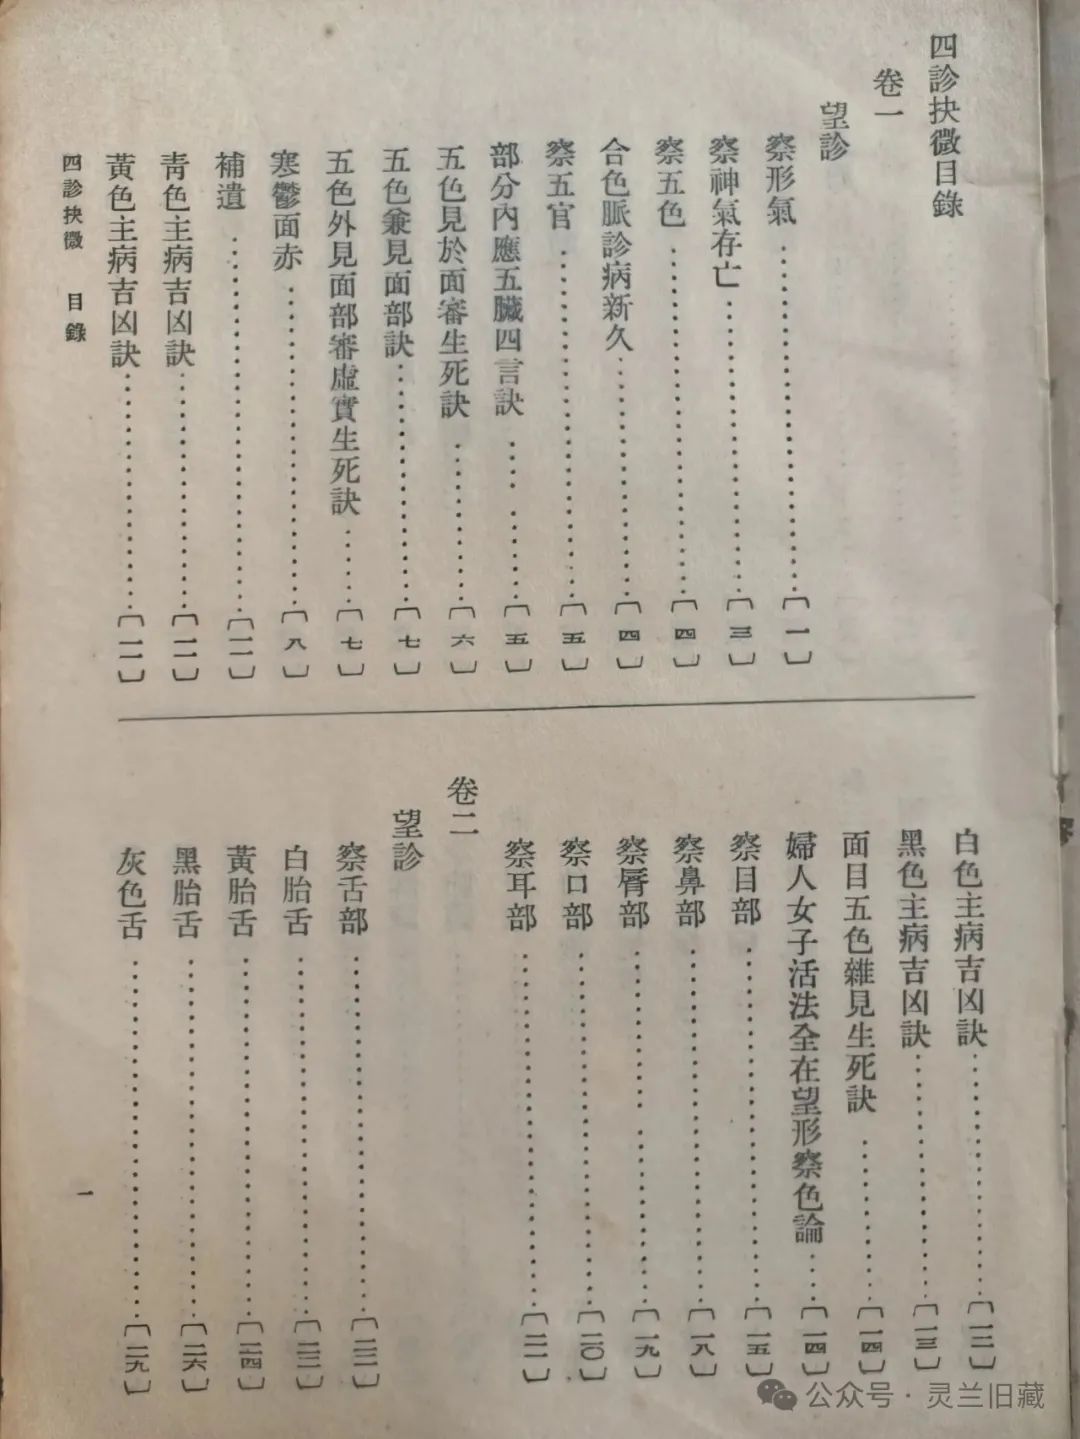 四診抉微目錄
卷一
望診
察形氣……〔一〕
察神氣存亡……〔三〕
察五色……〔四〕
合色脈診病新久……〔四〕
察五官……〔五〕
部分內應五臟四言訣……〔五〕
五色見於面審生死訣……〔六〕
五色兼見面部訣……〔七〕
五色外見面部審虛實生死訣……〔七〕
寒鬱面赤……〔八〕
補遺……〔一一〕
青色主病吉凶訣……〔一一〕
黃色主病吉凶訣……〔一二〕
白色主病吉凶訣……〔一二〕
黑色主病吉凶訣……〔一三〕
面目五色雜見生死訣……〔一四〕
婦人女子活法全在望形察色論……〔一四〕
察目部……〔一五〕
察鼻部……〔一八〕
察脣部……〔一九〕
察口部……〔二〇〕
察耳部……〔二一〕
卷二
望診
察舌部……〔二二〕
白胎舌……〔二三〕
黃胎舌……〔二四〕
黑胎舌……〔二六〕
灰色舌……〔二九〕
四診抉微 目錄
一
公众号·灵兰旧藏